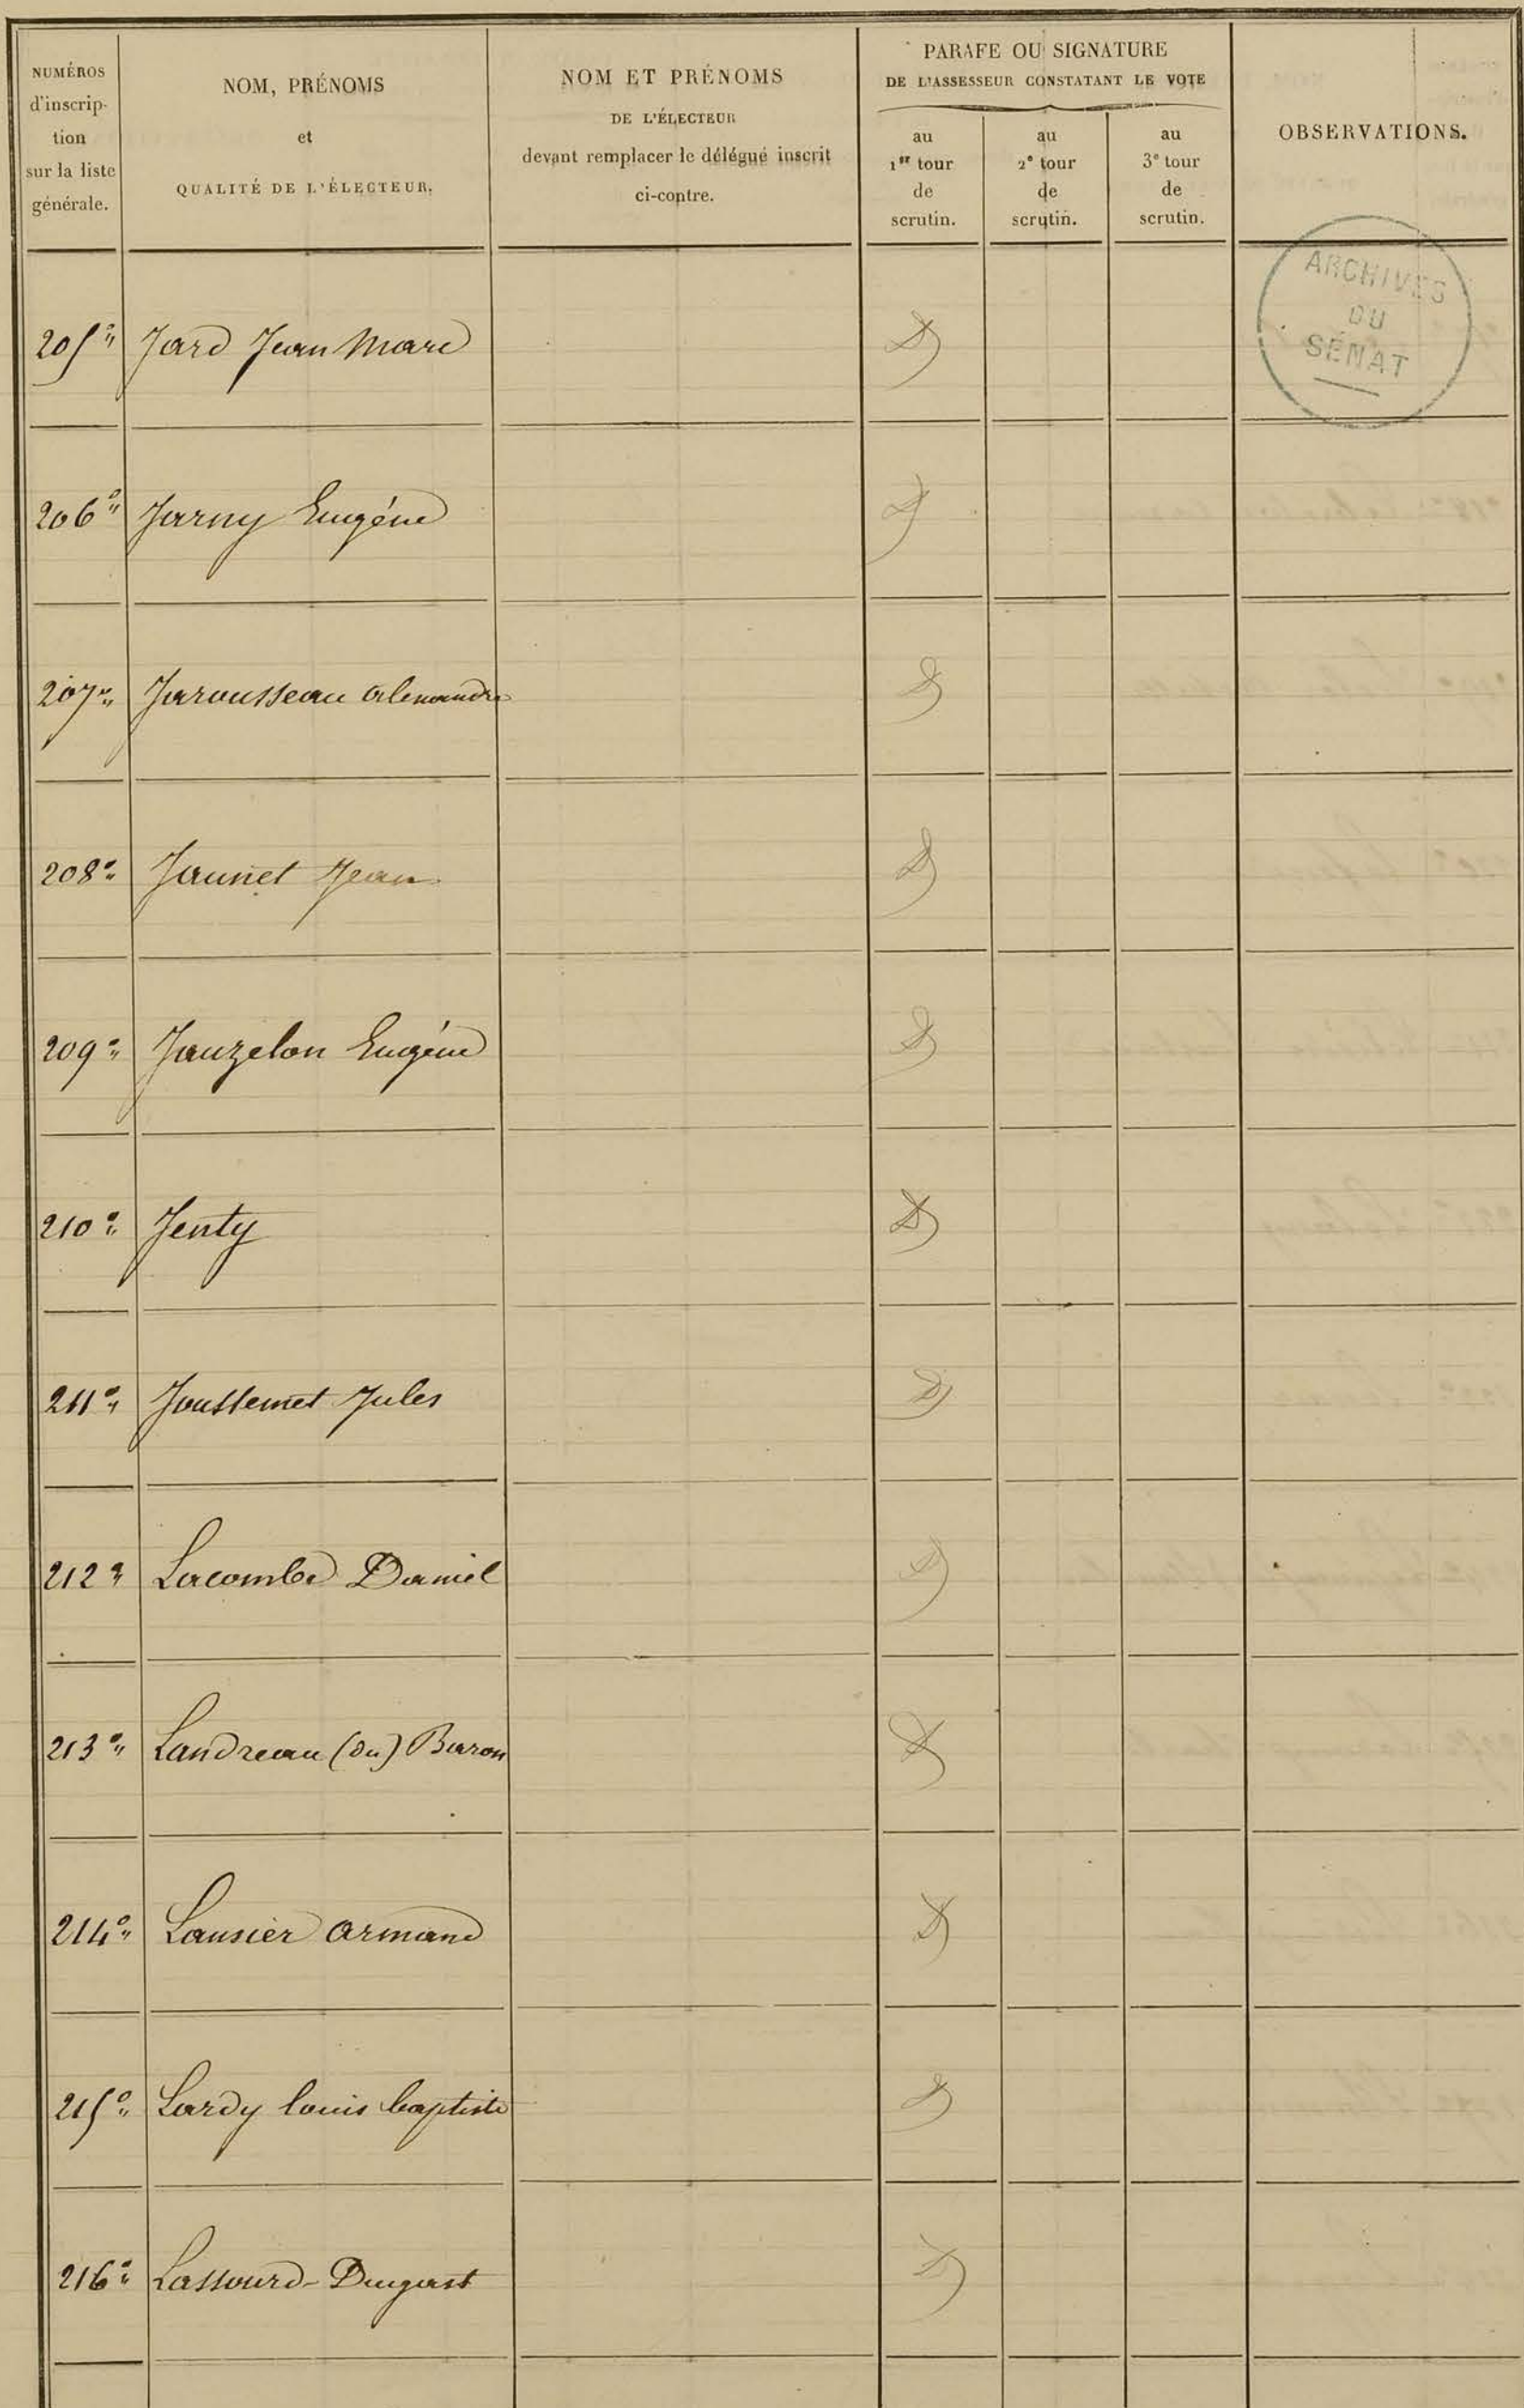 NUMÉROS
d'inscrip-
tion
sur la liste
générale.
NOM, PRÉNOMS
et
QUALITÉ DE L'ÉLECTEUR.
NOM ET PRÉNOMS
DE L'ÉLECTEUR
devant remplacer le délégué inscrit
ci-contre.
PARAFE OU SIGNATURE
DE L'ASSESSEUR CONSTATANT LE VOTE
au
1er tour
de
scrutin.
au
2e tour
de
scrutin.
au
3e tour
de
scrutin.
OBSERVATIONS.
ARCHIVES
DU
SÉNAT
205° Jard Jean Marc
206° Jarny Eugène
207° Jarousseau Alexandre
208° Jaunet Jean
209° Jauzelon Eugène
210° Jenty
211° Joussemet Jules
212° Lacombe Daniel
213° Landreau (du) Baron
214° Lausier Armand
215° Lardy louis baptiste
216° Lassourd-Dugast